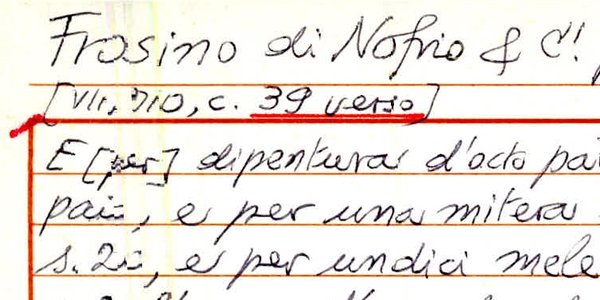 Frosino di Nofrio & C!
[VII, 310, c. 39 verso]
E [per] dipentura d'octo pai
pai=, e per una mitera
s. 2=, e per undici mele